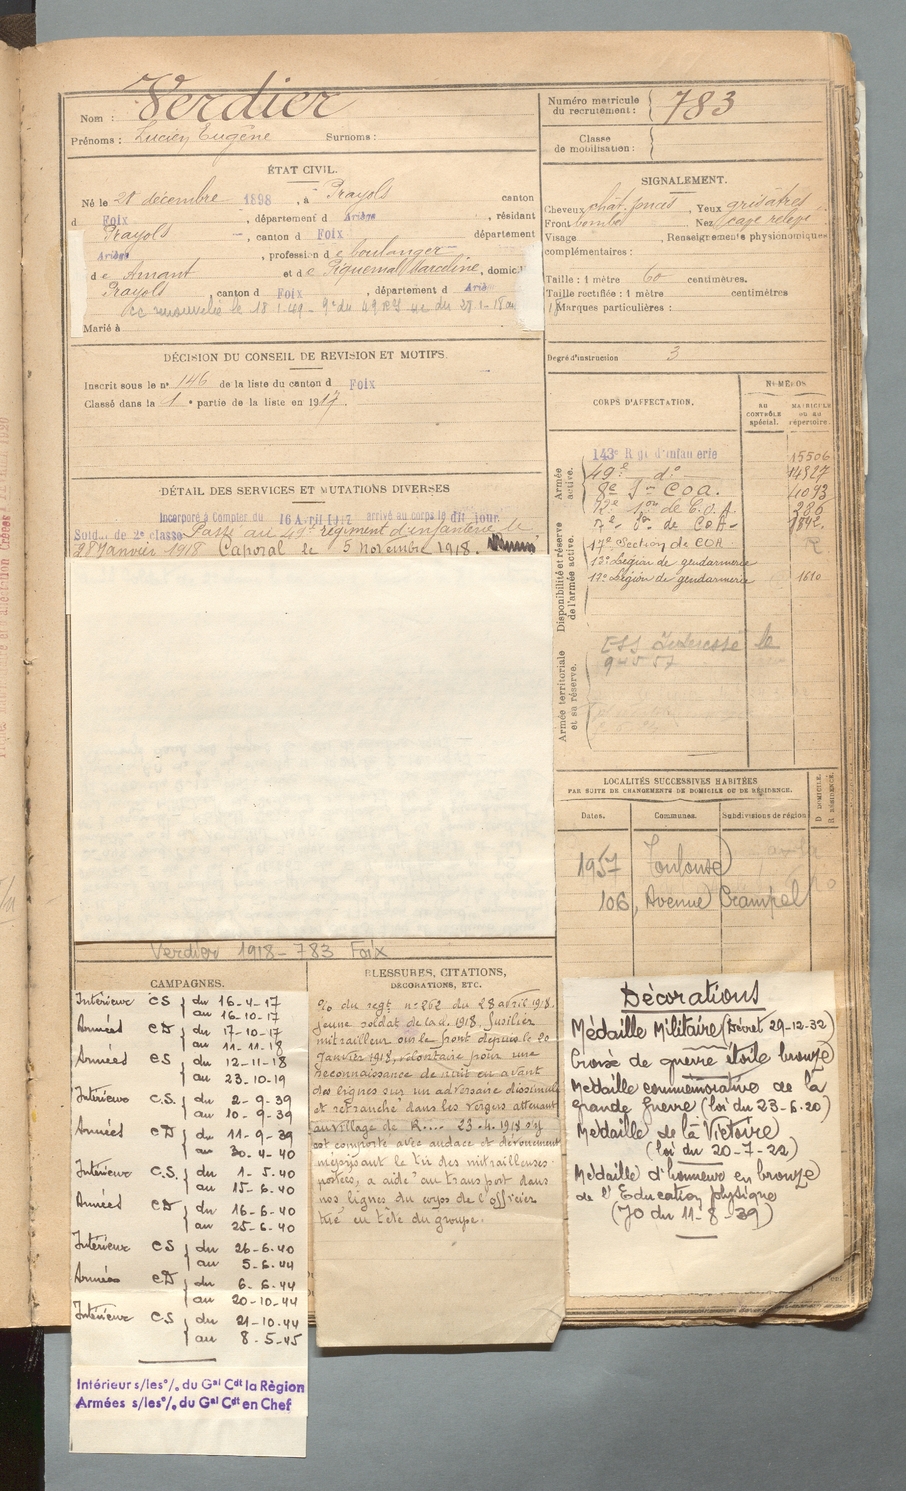 Nom : Verdier
Prénoms : Lucien Eugène Surnoms :
Numéro matricule
du recrutement : 783
Classe
de mobilisation :
ÉTAT CIVIL.
Né le 20 décembre 1898, à Prayols canton
d Foix, département d Ariège, résidant
Prayols, canton d Foix département
Ariège, profession de boulanger
de Amant et de Piquemal Marceline, domicil
Prayols, canton d Foix, département d Ariè
Marié à
SIGNALEMENT.
Cheveux chât. foncés, Yeux grisâtres
Front bombé Nez
Visage, Renseignements physionomiques
complémentaires :
Taille : 1 mètre 60 centimètres.
Taille rectifiée : 1 mètre centimètres
Marques particulières :
Degré d'instruction 3
DÉCISION DU CONSEIL DE REVISION ET MOTIFS.
Inscrit sous le n° 146 de la liste du canton d Foix
Classé dans la 1e partie de la liste en 1917.
DÉTAIL DES SERVICES ET MUTATIONS DIVERSES
Incorporé à Compter du 16 Avril 1917 arrivé au corps le dit jour.
Soldat de 2e classe Passé au 49e régiment d'infanterie le
28 Janvier 1918 Caporal le 5 Novembre 1918.
CORPS D'AFFECTATION.
NUMÉROS
AU
CONTRÔLE
spécial.
MATRICULE
OU AU
répertoire.
Armée
active.
143e Rgt d'infanterie 15506
49e do 14327
8e Son COA. 4093
7e Son de COA 1842
17e Section de COA R
13e Légion de gendarmerie
17e Légion de gendarmerie 1610
Disponibilité et réserve
de l'armée active.
Armée territoriale
et sa réserve.
LOCALITÉS SUCCESSIVES HABITÉES
PAR SUITE DE CHANGEMENTS DE DOMICILE OU DE RÉSIDENCE.
Dates. Communes. Subdivisions de région
D DOMICILE.
R RÉSIDENCE.
1957 Toulouse
106, Avenue Crampel
Verdier 1918-783 Foix
CAMPAGNES.
Intérieur CS du 16-4-17
au 16-10-17
Armées CD du 17-10-17
au 11-11-18
Armées CS du 12-11-18
au 23-10-19
Intérieur C.S. du 2-9-39
au 10-9-39
Armées CD du 11-9-39
au 30-4-40
Intérieur C.S. du 1-5-40
au 15-6-40
Armées CD du 16-6-40
au 25-6-40
Intérieur CS du 26-6-40
au 5-6-44
Armées CD du 6-6-44
au 20-10-44
Intérieur CS du 21-10-44
au 8-5-45
Intérieur s/les °/. du Gal Cdt la Règion
Armées s/les °/. du Gal Cdt en Chef
BLESSURES, CITATIONS,
DÉCORATIONS, ETC.
du regt n° 262 du 28 avril 1918.
Jeune soldat de la cl. 1918, fusilier
mitrailleur sur le front depuis le 20
Janvier 1918, volontaire pour une
reconnaissance de nuit en avant
des lignes sur un adversaire dissimulé
et retranché dans les vergers attenant
au village de R... 23.4.1918 s'y
est comporté avec audace et dévouement
méprisant le tir des mitrailleuses
postées, a aidé au transport dans
nos lignes du corps de l'officier
tué en tête du groupe.
Décorations
Médaille Militaire (Décret 29-12-32)
Croix de guerre étoile bronze
Médaille commémorative de la
Grande Guerre (loi du 23-6-20)
Médaille de la Victoire
(loi du 20-7-22)
Médaille d'honneur en bronze
de l'Education physique
(JO du 11-8-39)